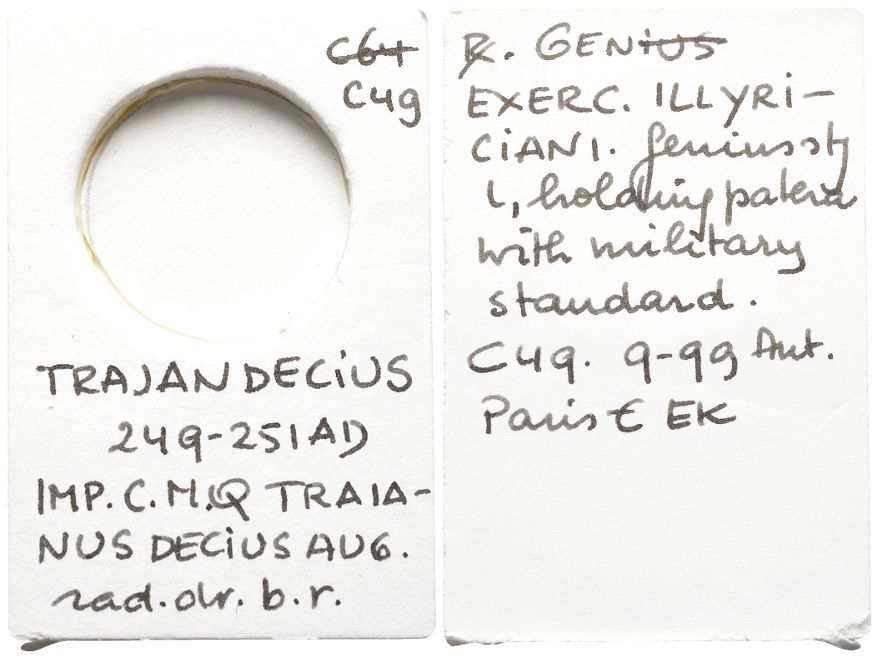 C64
C49
TRAJAN DECIUS
249-251 AD
IMP. C. M. Q TRAIA-
NUS DECIUS AUG.
rad. dr. b. r.
R. GENIUS
EXERC. ILLYRI-
CIANI. Genius st
l, holding patera
with military
standard.
C49. 9-99 Ant.
Paris € EK